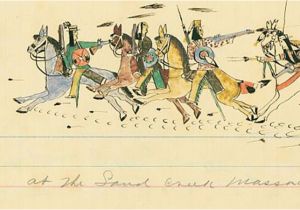 at the Sand Creek Massac